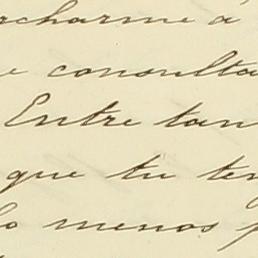 charme á
e consulta
Entre tan
que tu ten
lo menos p